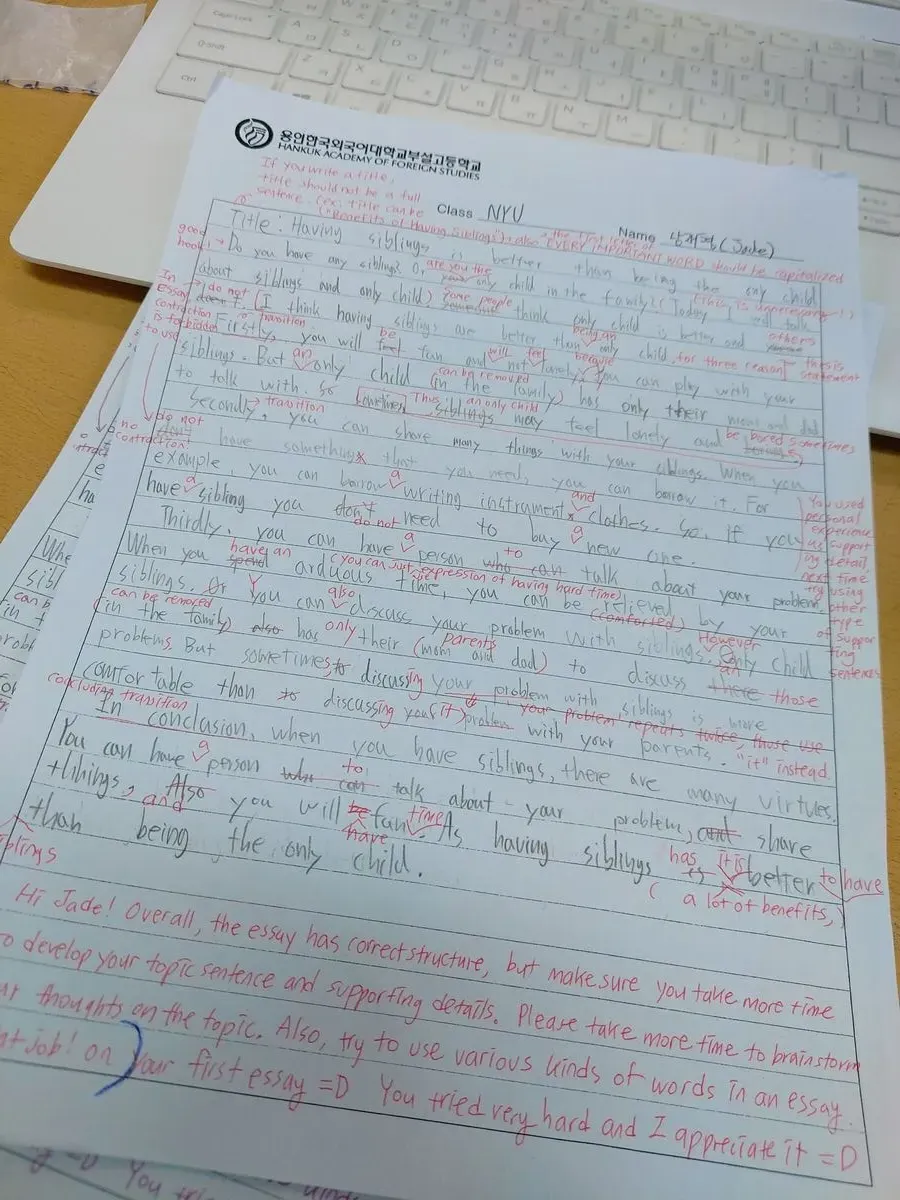 용인한국외국어대학교부설고등학교
HANKUK ACADEMY OF FOREIGN STUDIES
If you write a title,
title should not be a full
sentence. (ex: title can be
"Benefits of Having Siblings") + also the first letter of EVERY IMPORTANT WORD should be capitalized
Class NYU
Name (Jade)
Title: Having siblings is better than being the only child
good hook!
Do you have any siblings? O, are you the only child in the family? (Today, I will talk
(This is unnecessary!)
about siblings and only child) some people think only child is better and others
In essay, contraction is forbidden to use
do not
(I think having siblings are better than being an only child, for three reason)
thesis statement
transition
Firstly, you will be fun and not will feel lonely, because you can play with your
siblings. But an only child (in the family) has only their mom and dad
can be removed
to talk with. So sometimes Thus, an only child siblings may feel lonely and be bored sometimes
Secondly, you can share many things with your siblings. When you
transition
do not
no contraction
have something that you need, you can borrow it. For
example, you can borrow a writing instrument and clothes. So, if you
have a sibling you don't need to buy a new one.
do not
You used personal experience as supporting detail, next time try using other type of supporting sentences
Thirdly, you can have a person who can to talk about your problem.
When you spend have an arduous time, you can be relieved by your
(you can just expression of having hard time)
(comforted)
siblings. Or You can also discuss your problem with siblings. However Only child
can be removed
(in the family) also has only their (mom and dad) to discuss there those
parents
problems. But sometimes to discussing your problem with siblings is more
comfortable than to discussing your (it) problem with your parents.
"your problem" repeats twice, those use "it" instead
concluding transition
In conclusion, when you have siblings, there are many virtues.
You can have a person who can to talk about your problem, and share
thhings, Also and you will be have fun time. As having siblings is has it is better to have
(a lot of benefits,)
than being the only child.
siblings
Hi Jade! Overall, the essay has correct structure, but make sure you take more time
to develop your topic sentence and supporting details. Please take more time to brainstorm
thoughts on the topic. Also, try to use various kinds of words in an essay.
job! on your first essay =D You tried very hard and I appreciate it =D